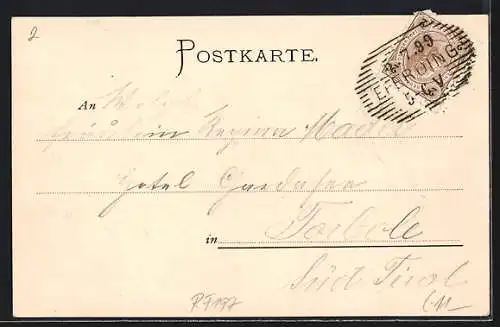 2
POSTKARTE.
2.7.99
EFERDING
An
Fräulein Regina Mader
Hotel Gardasee
in Torbole
Süd Tirol